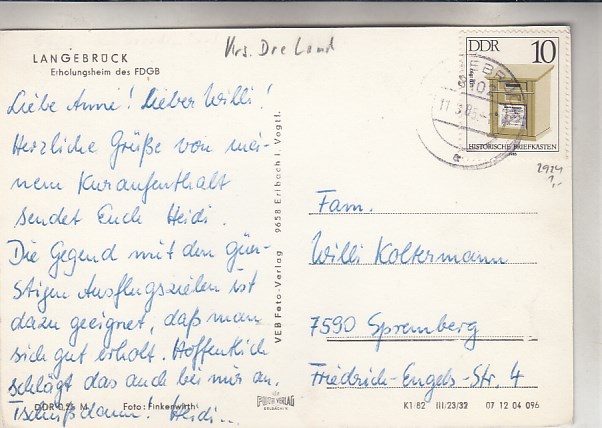 Krs. Dre Land
LANGEBRÜCK
Erholungsheim des FDGB
Liebe Anni! Lieber Willi!
Herzliche Grüße von mei-
nem Kuraufenthalt
sendet Euch Heidi.
Die Gegend mit den gün-
stigen Ausflugszielen ist
dazu geeignet, daß man
sich gut erholt. Hoffentlich
schlägt das auch bei mir an.
Tschüß dann! Heidi...
DDR 0,25 M Foto: Finkenwirth
VEB Foto-Verlag 9658 Erlbach i. Vogtl.
FOTO VERLAG
ERLBACH
DDR 10
HISTORISCHE BRIEFKASTEN
1985
2924
1,-
Fam.
Willi Koltermann
7590 Spremberg
Friedrich-Engels-Str. 4
K1/82 III/23/32 07 12 04 096